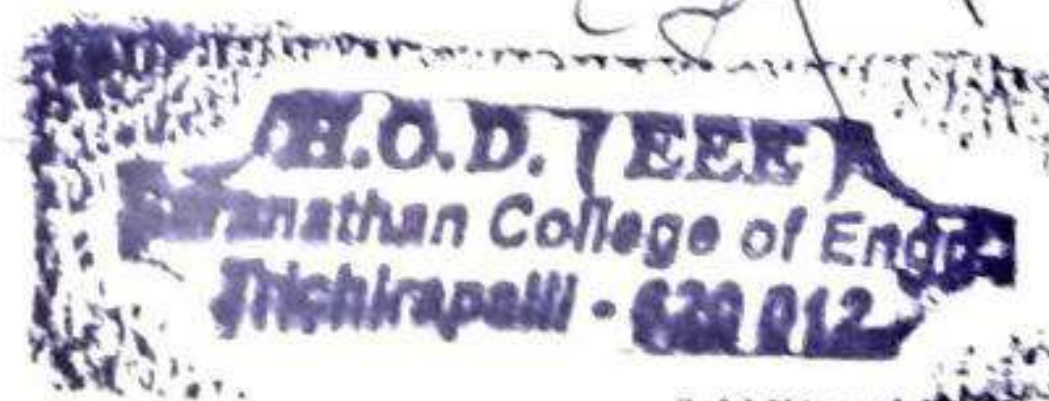 H.O.D. (EEE)
Saranathan College of Engg.
Trichirapalli - 620 012